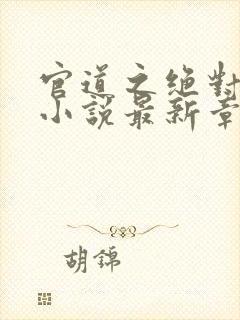 官道之絕對
小說最新章
胡錦